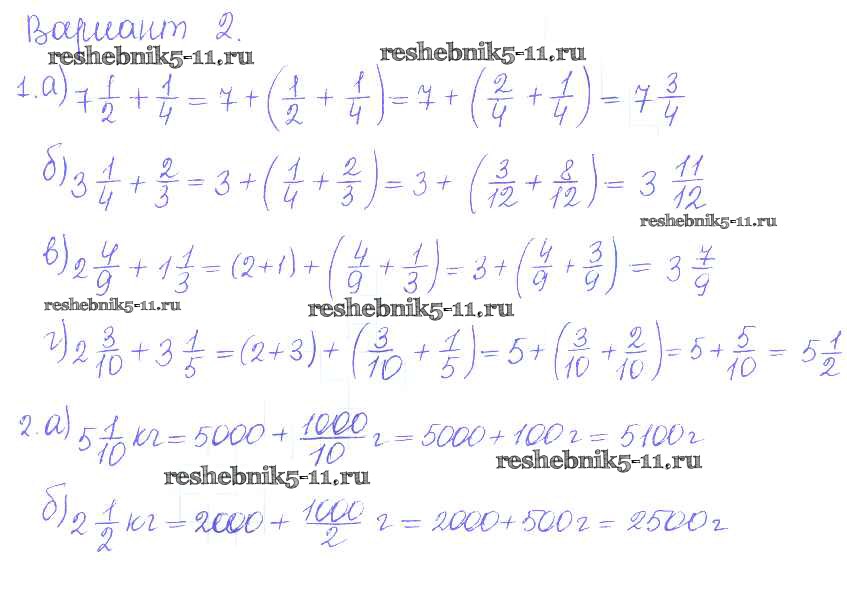 Вариант 2.
reshebnik5-11.ru reshebnik5-11.ru
1. а) 7 1/2 + 1/4 = 7 + (1/2 + 1/4) = 7 + (2/4 + 1/4) = 7 3/4
б) 3 1/4 + 2/3 = 3 + (1/4 + 2/3) = 3 + (3/12 + 8/12) = 3 11/12
reshebnik5-11.ru
в) 2 4/9 + 1 1/3 = (2+1) + (4/9 + 1/3) = 3 + (4/9 + 3/9) = 3 7/9
reshebnik5-11.ru reshebnik5-11.ru
г) 2 3/10 + 3 1/5 = (2+3) + (3/10 + 1/5) = 5 + (3/10 + 2/10) = 5 + 5/10 = 5 1/2
2. а) 5 1/10 кг = 5000 + 1000/10 г = 5000 + 100 г = 5100 г
reshebnik5-11.ru reshebnik5-11.ru
б) 2 1/2 кг = 2000 + 1000/2 г = 2000 + 500 г = 2500 г